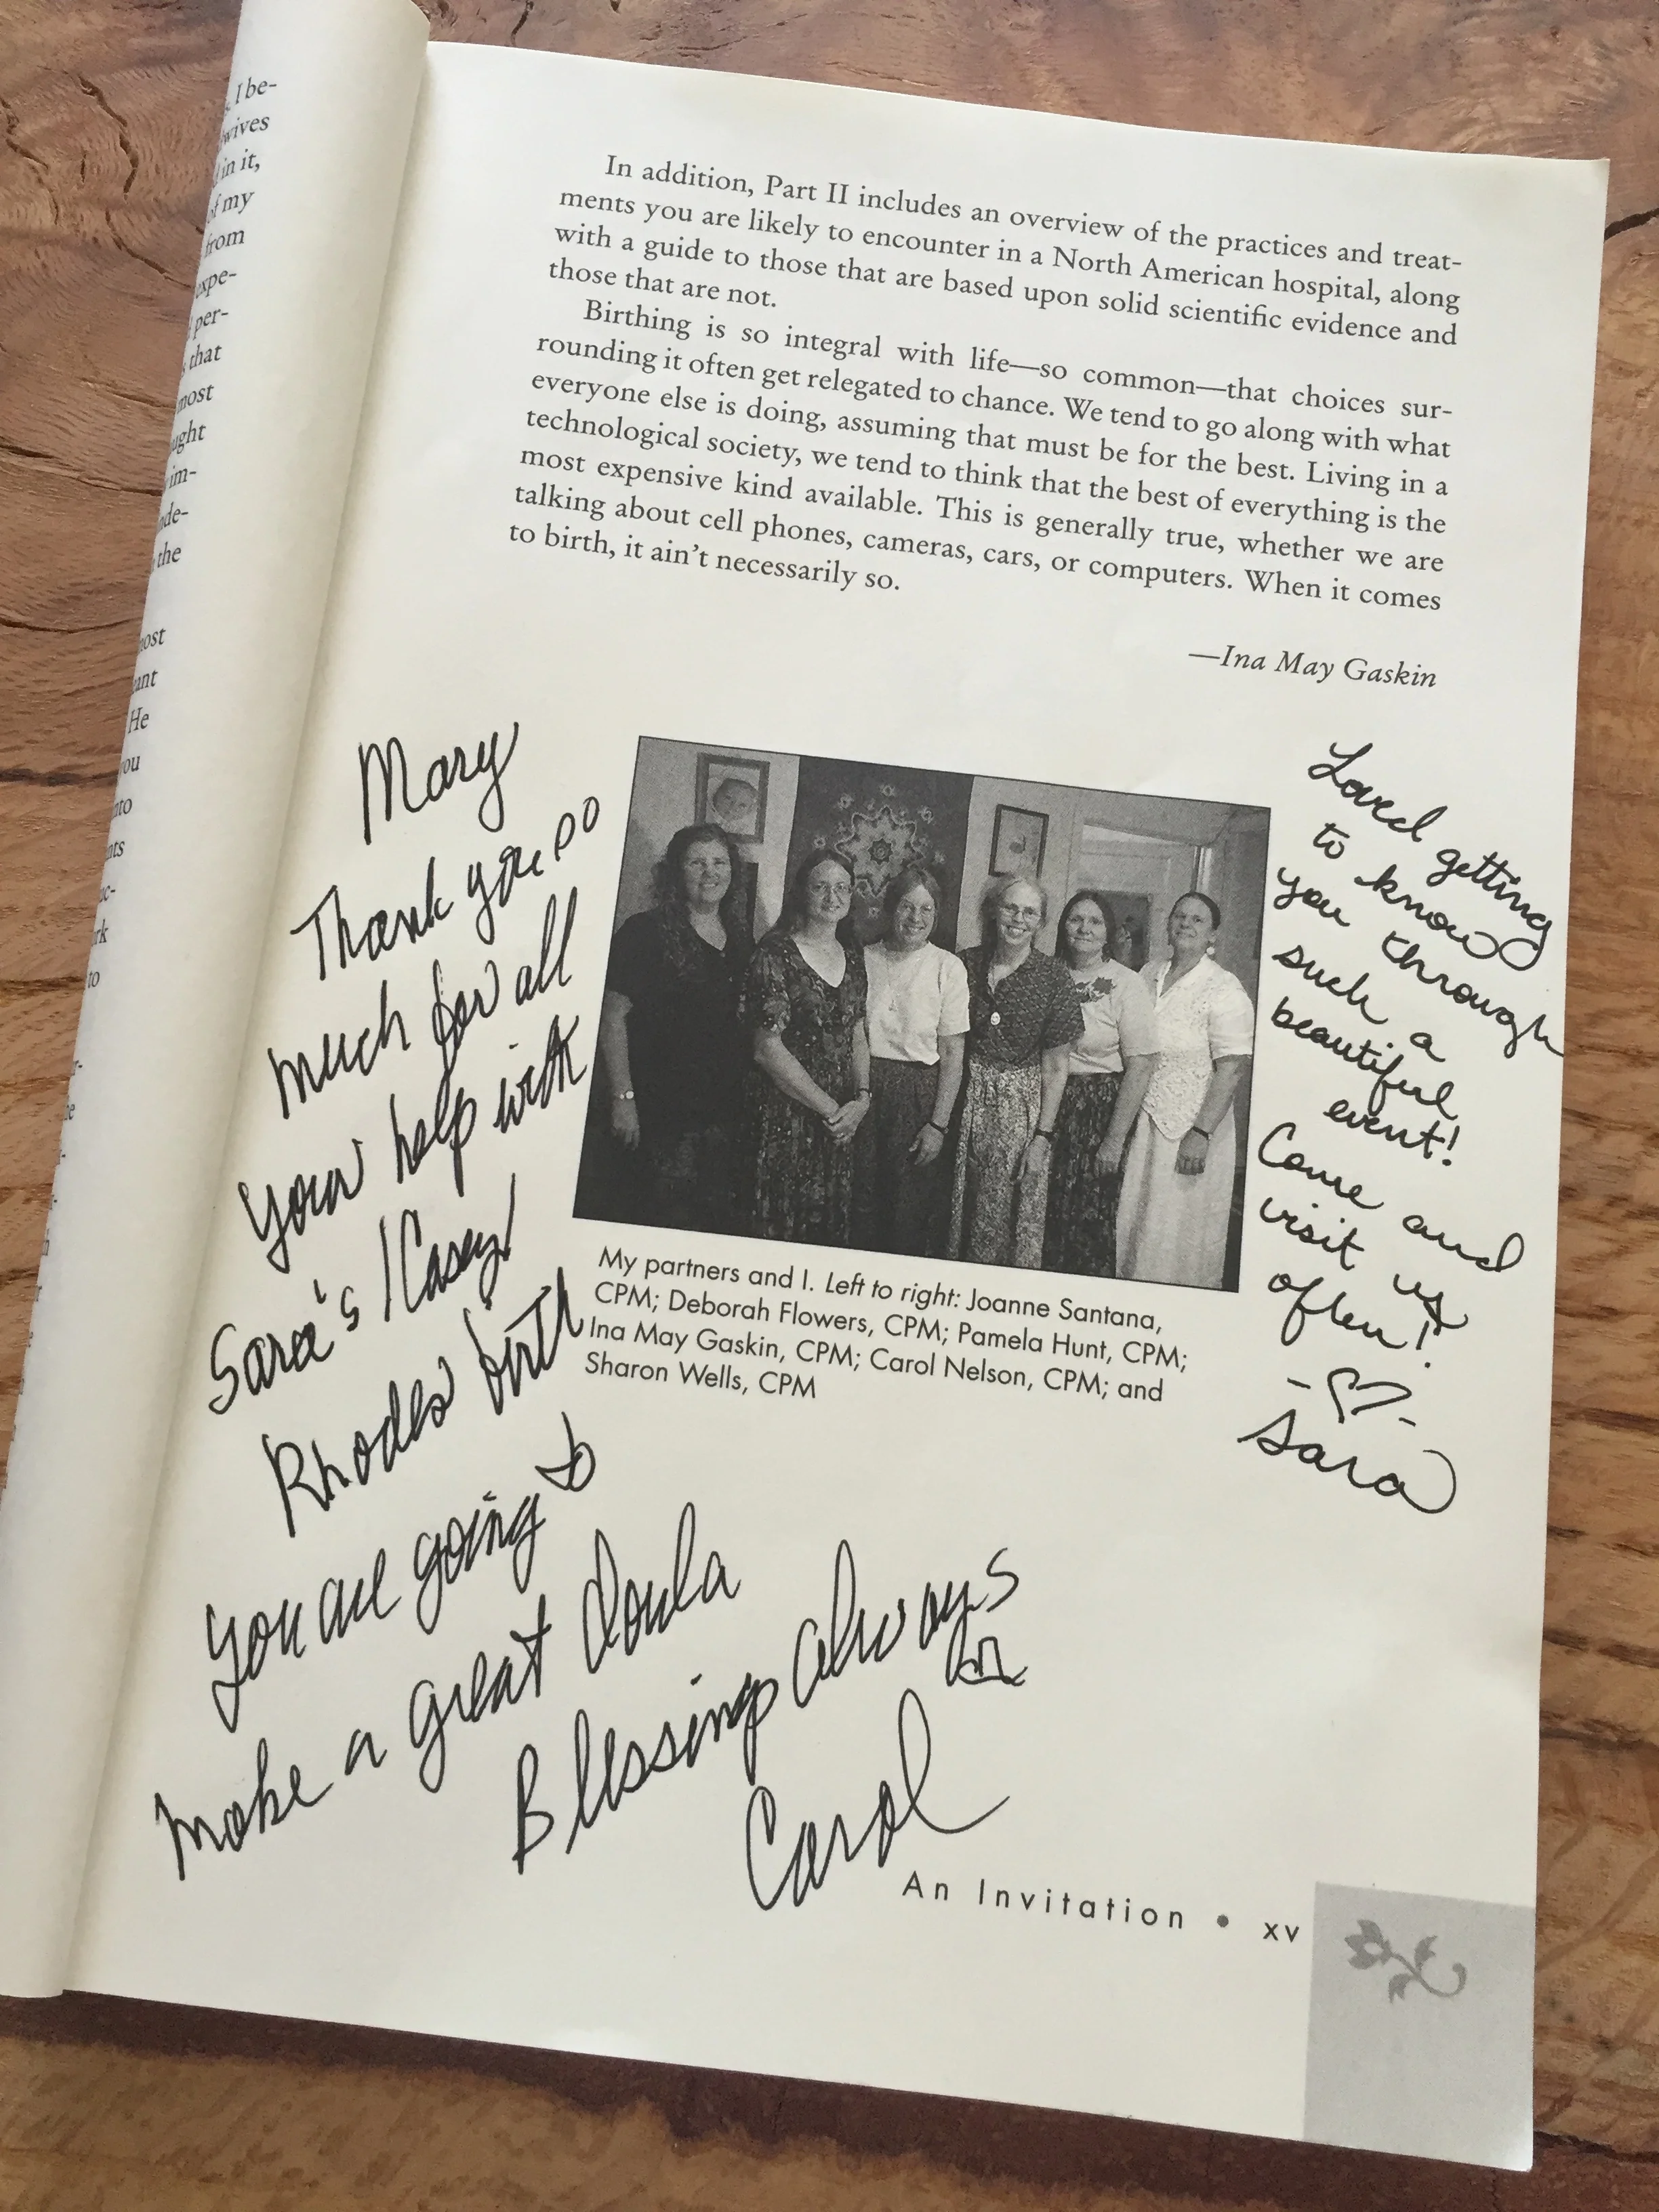 , I be-
wives
d in it,
of my
from
expe-
per-
that
most
ught
im-
nde-
the
most
ant
He
you
nto
nts
ac-
rk
to
In addition, Part II includes an overview of the practices and treat-
ments you are likely to encounter in a North American hospital, along
with a guide to those that are based upon solid scientific evidence and
those that are not.
Birthing is so integral with life—so common—that choices sur-
rounding it often get relegated to chance. We tend to go along with what
everyone else is doing, assuming that must be for the best. Living in a
technological society, we tend to think that the best of everything is the
most expensive kind available. This is generally true, whether we are
talking about cell phones, cameras, cars, or computers. When it comes
to birth, it ain't necessarily so.
—Ina May Gaskin
Mary
Thank you so
much for all
your help with
Sara's / Casey
Rhodes birth
You are going to
make a great doula
Blessings always
Carol
Loved getting
to know
you through
such a
beautiful
event!
Come and
visit us
often!
- ♡ -
Sara
My partners and I. Left to right: Joanne Santana,
CPM; Deborah Flowers, CPM; Pamela Hunt, CPM;
Ina May Gaskin, CPM; Carol Nelson, CPM; and
Sharon Wells, CPM
An Invitation • xv